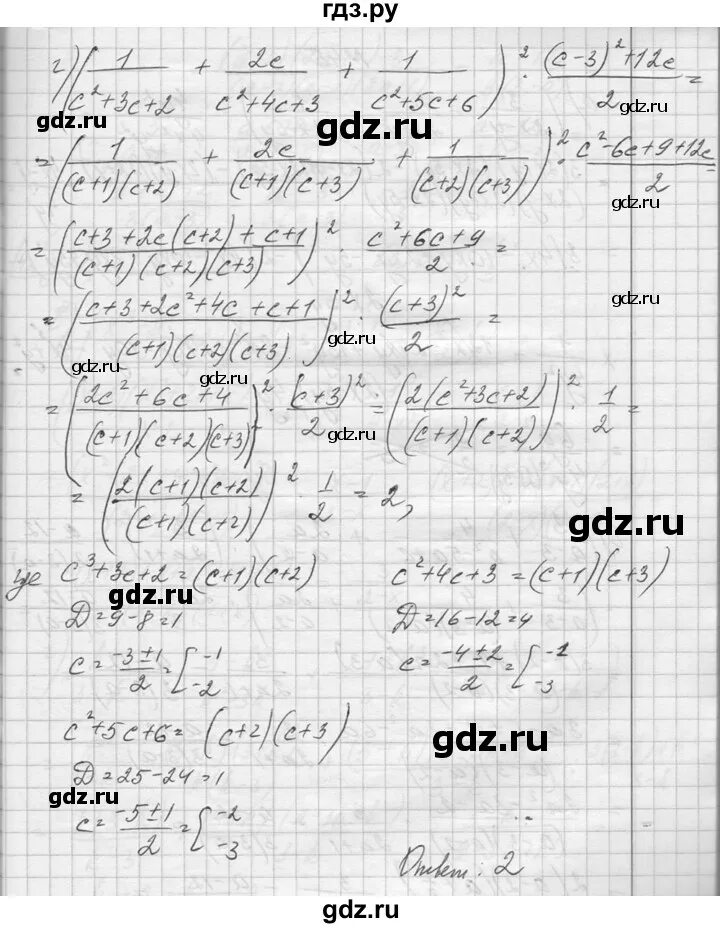 гдз.ру
г) (1/(c²+3c+2) + 2c/(c²+4c+3) + 1/(c²+5c+6))² · ((c-3)²+12c)/2 =
gdz.ru
gdz.ru
gdz.ru
= (1/((c+1)(c+2)) + 2c/((c+1)(c+3)) + 1/((c+2)(c+3)))² · (c²-6c+9+12c)/2 =
gdz.ru
= ((c+3+2c(c+2)+c+1)/((c+1)(c+2)(c+3)))² · (c²+6c+9)/2 =
gdz.ru
gdz.ru
= ((c+3+2c²+4c+c+1)/((c+1)(c+2)(c+3)))² · (c+3)²/2 =
gdz.ru
gdz.ru
gdz.ru
= ((2c²+6c+4)/((c+1)(c+2)(c+3)))² · (c+3)²/2 = (2(c²+3c+2)/((c+1)(c+2)))² · 1/2 =
gdz.ru
= (2(c+1)(c+2)/((c+1)(c+2)))² · 1/2 = 2,
gdz.ru
где c³+3c+2=(c+1)(c+2)
c²+4c+3=(c+1)(c+3)
gdz.ru
D=9-8=1
D=16-12=4
c=(-3±1)/2=[-1 -2
c=(-4±2)/2=[-1 -3
c²+5c+6=(c+2)(c+3)
gdz.ru
D=25-24=1
gdz.ru
c=(-5±1)/2=[-2 -3
gdz.ru
Ответ: 2
gdz.ru